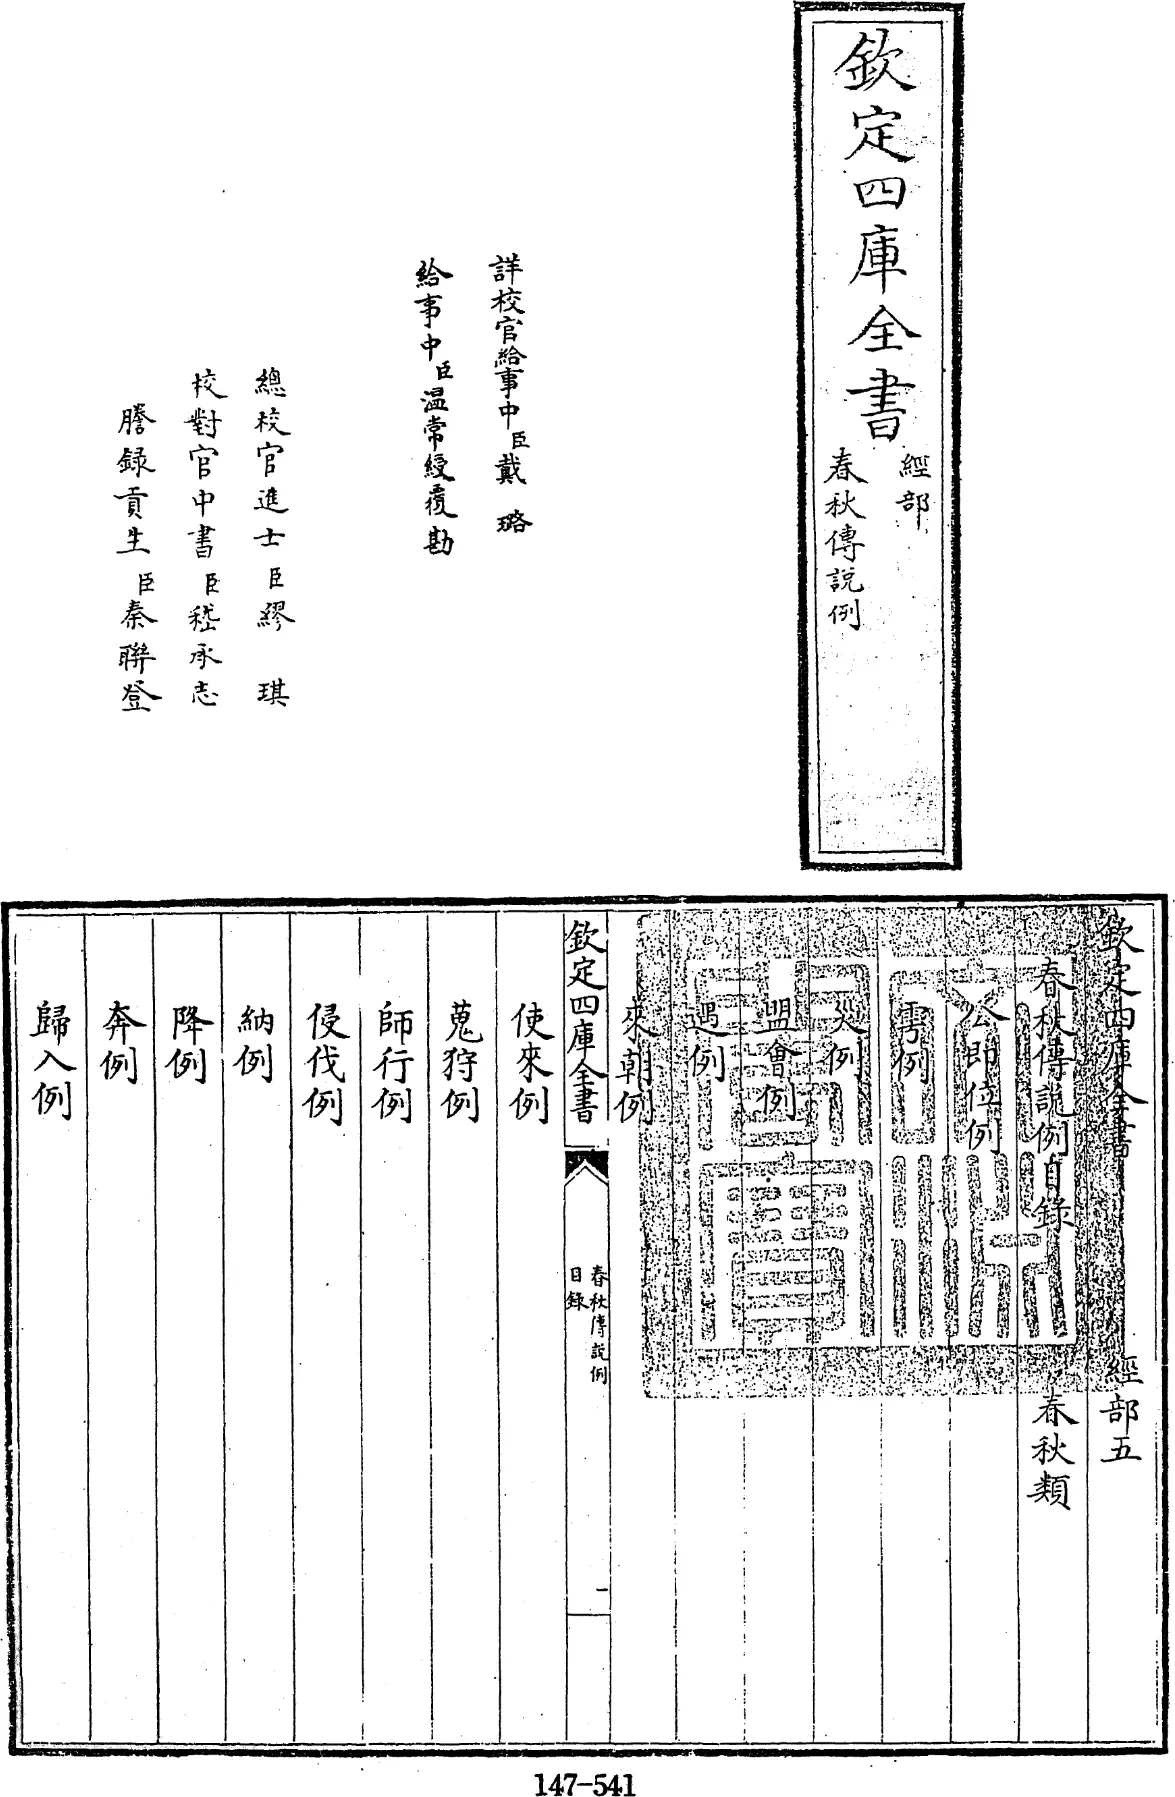 欽定四庫全書
經部
春秋傳說例
詳校官給事中臣戴璐
給事中臣溫常綬覆勘
總校官進士臣繆琪
校對官中書臣嵇承志
謄錄貢生臣秦聯登
欽定四庫全書 經部五
春秋傳說例目錄 春秋類
公即位例
雩例
災例
盟會例
遇例
來朝例
欽定四庫全書
春秋傳說例
目錄
一
使來例
蒐狩例
師行例
侵伐例
納例
降例
奔例
歸入例
147-541